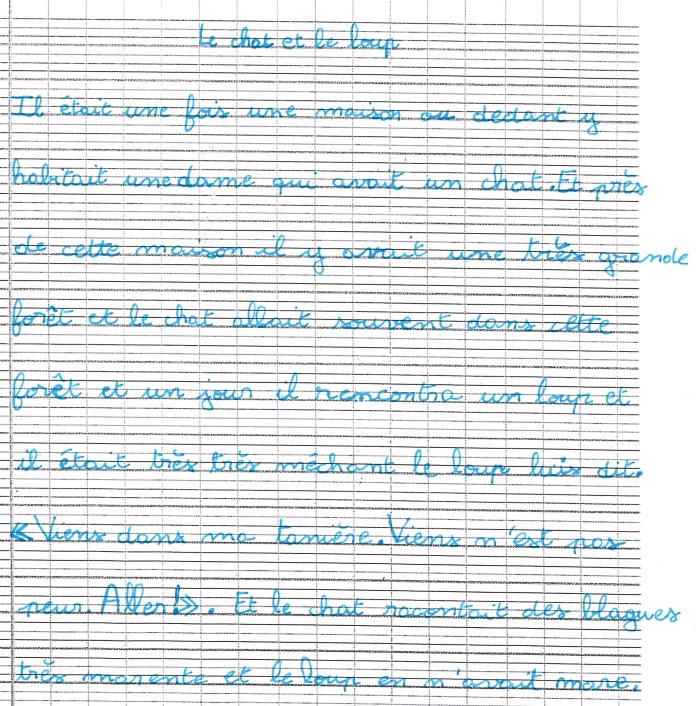 Le chat et le loup
Il était une fois une maison ou dedant y
habitait une dame qui avait un chat. Et près
de cette maison il y avait une très grande
forêt et le chat allait souvent dans cette
forêt et un jour il rencontra un loup et
il était très très méchant le loup luis dit.
« Viens dans ma tanière. Viens n'est pas
peur. Aller! ». Et le chat racontait des blagues
très marente et le loup en n'avait mare.